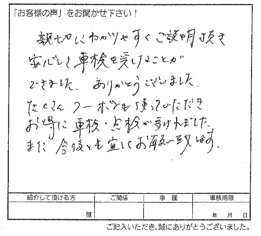 「お客様の声」をお聞かせ下さい！
親切にわかりやすくご説明頂き
安心して車検を受けることが
できました。ありがとうございました。
たくさんクーポンも使っていただき
お得に車検・点検が受けれました。
また今後とも宜しくお願い致します。
紹介して頂ける方 ご関係 車屋 車検時期
様 年 月 日
ご記入いただき、誠にありがとうございました。